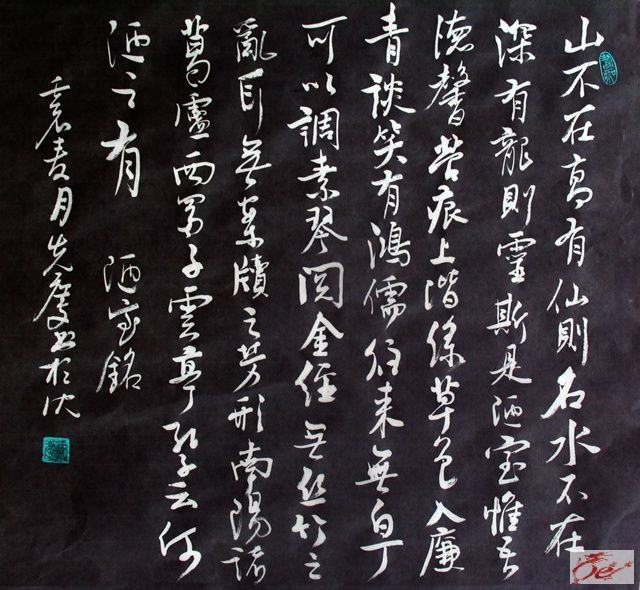 山不在高有仙則名水不在
深有龍則靈斯是陋室惟吾
德馨苔痕上階綠草色入廉
青談笑有鴻儒往来無白丁
可以調素琴閱金经無丝竹之
亂耳無案牘之勞形南陽諸
葛廬西蜀子雲亭孔子云何
陋之有 陋室銘
壬辰春月先书於沈